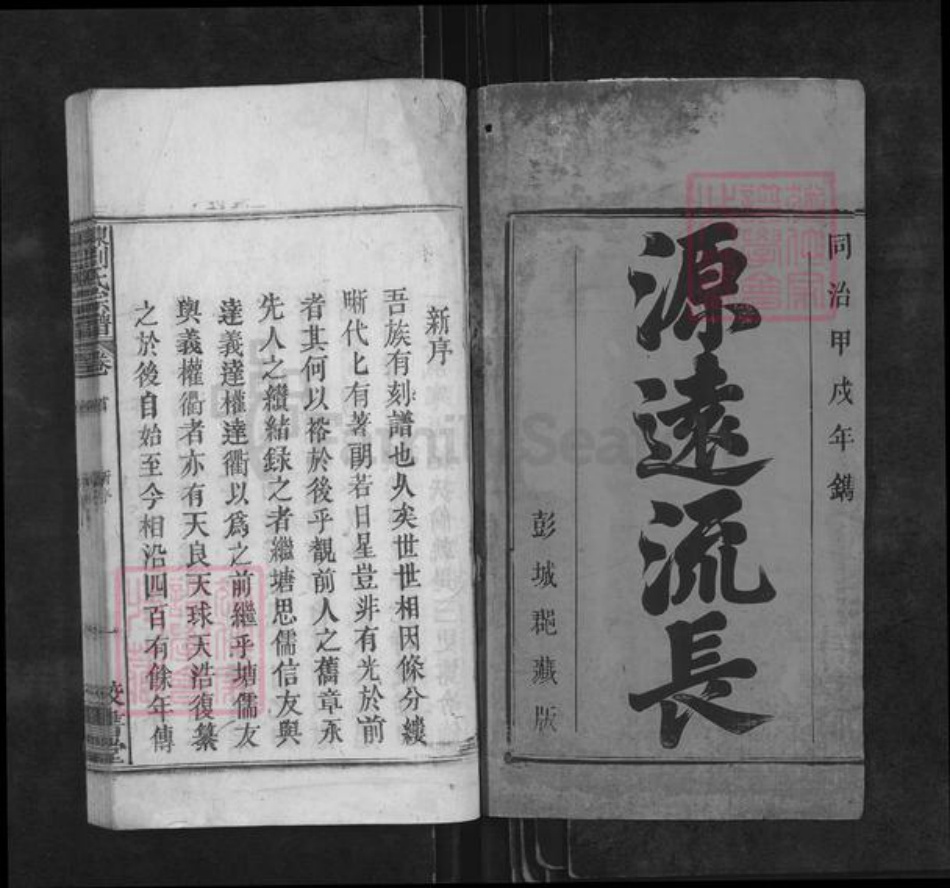 同治甲戌年鐫
源遠流長
彭城郡藏版
新序
吾族有刻譜也久矣世世相因條分縷
晰代匕有著朗若日星豈非有光於前
者其何以裕於後乎觀前人之舊章承
先人之纘緒録之者繼塘思儒信友與
達義達權達衢以爲之前繼乎塘儒友
與義權衢者亦有天良天球天浩復纂
之於後自始至今相沿四百有餘年傳
劉氏宗譜
卷首
新序
校書堂
FamilySearch